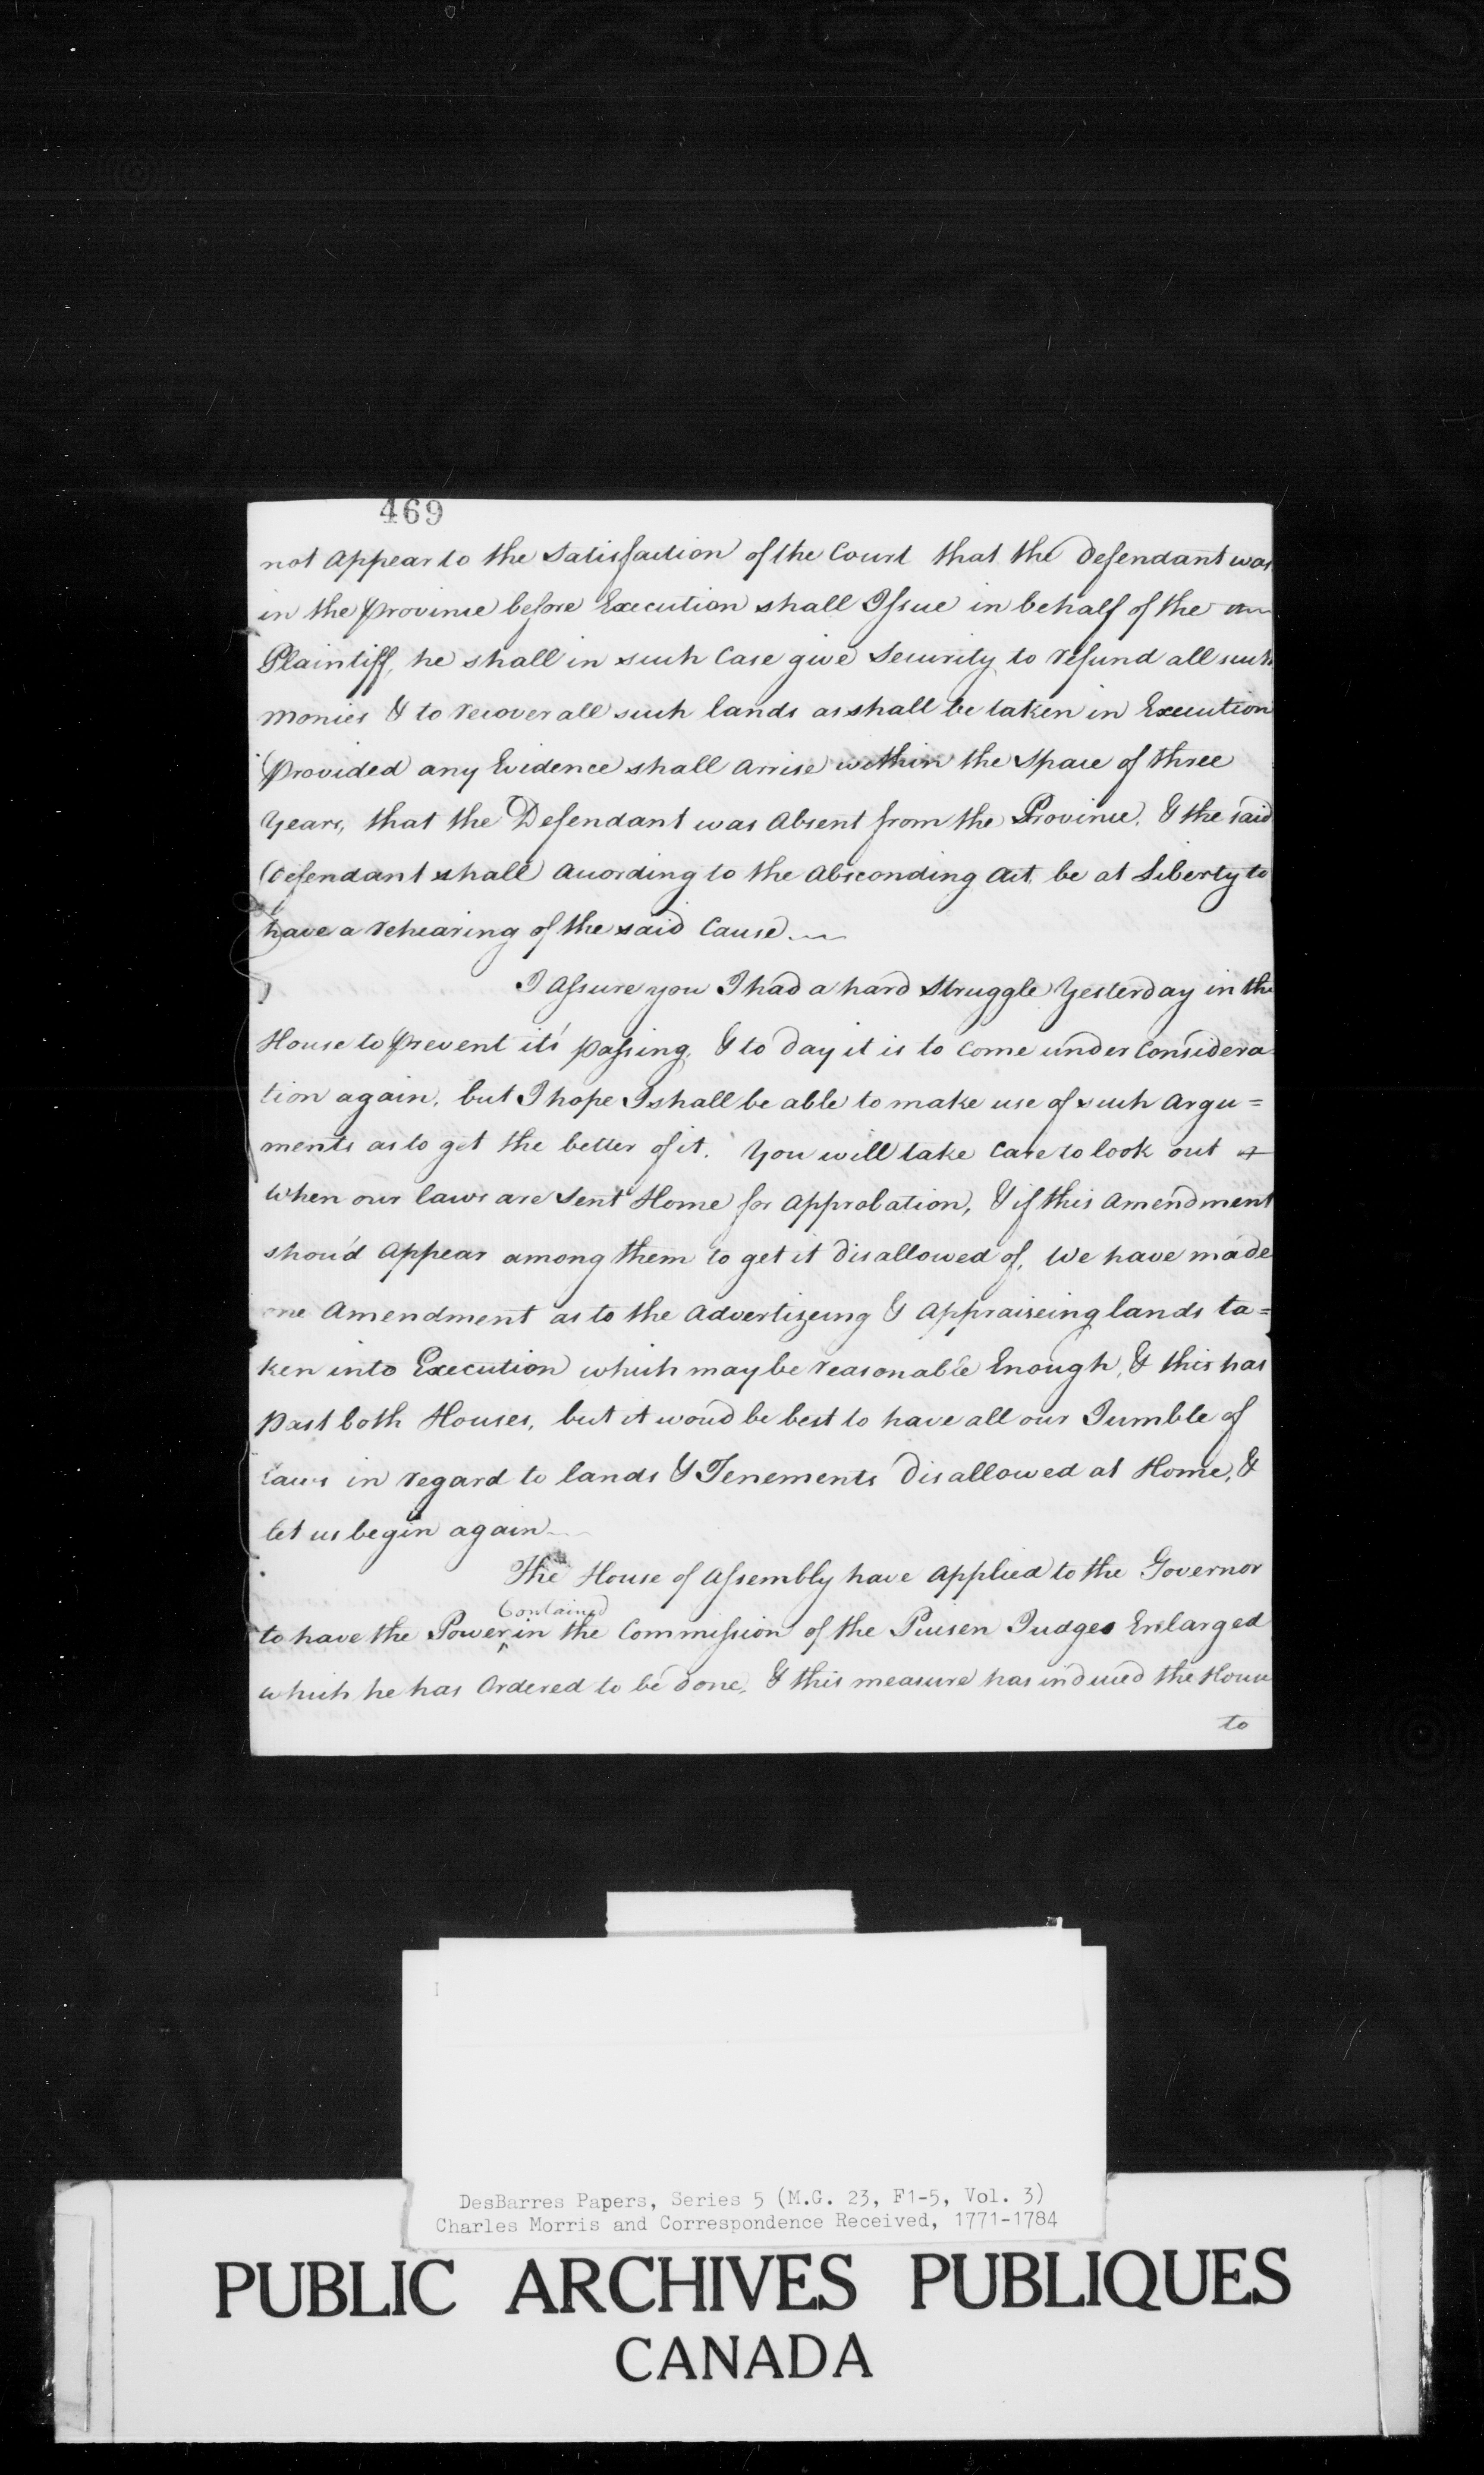 469
not Appear to the Satisfaction of the Court that the Defendant was
in the Province before Execution shall Issue in behalf of the
Plaintiff, he shall in such Case give Security to refund all such
monies & to recover all such lands as shall be taken in Execution
Provided any Evidence shall Arrise within the Space of three
Years, that the Defendant was Absent from the Province. & the said
Defendant shall According to the Absconding Act, be at Liberty to
have a rehearing of the said Cause.
I Assure you I had a hard Struggle Yesterday in the
House to Prevent it's passing, & to day it is to Come under Considera=
tion again, but I hope I shall be able to make use of such Argu=
ments as to get the better of it. You will take Care to look out
when our laws are Sent Home for Approbation, & if this Amendment
shou'd Appear among them to get it Disallowed of, We have made
one Amendment as to the Advertizeing & Appraiseing lands ta=
ken into Execution which may be reasonable Enough, & this has
past both Houses, but it wou'd be best to have all our Jumble of
laws in regard to lands & Tenements Disallowed at Home, &
let us begin again
The House of Assembly have Applied to the Governor
Contained
to have the Power ^ in the Commission of the Puisen Judges Enlarged
which he has Ordered to be done, & this measure has induced the House
to
DesBarres Papers, Series 5 (M.G. 23, F1-5, Vol. 3)
Charles Morris and Correspondence Received, 1771-1784
PUBLIC ARCHIVES PUBLIQUES
CANADA